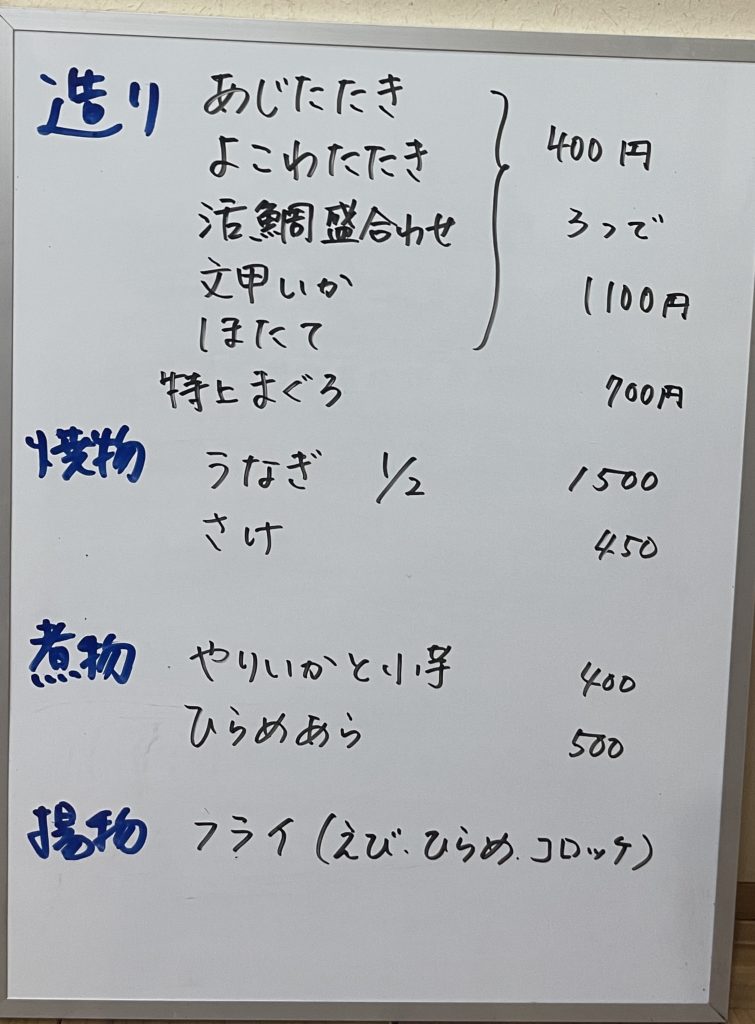 造り あじたたき
よこわたたき 400円
活鯛盛合わせ 3つで
文甲いか 1100円
ほたて
特上まぐろ 700円
焼物 うなぎ 1/2 1500
さけ 450
煮物 やりいかと小芋 400
ひらめあら 500
揚物 フライ(えび.ひらめ.コロッケ)